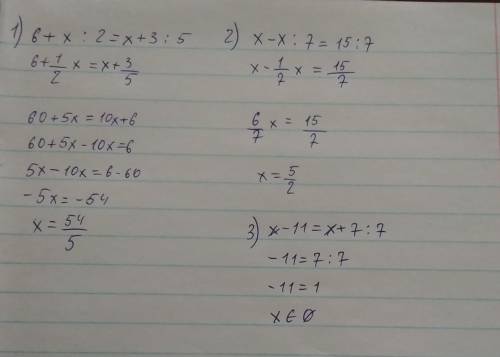 1) 6 + x : 2 = x + 3 : 5
6 + 1/2 x = x + 3/5
60 + 5x = 10x + 6
60 + 5x - 10x = 6
5x - 10x = 6 - 60
-5x = -54
x = 54/5
2) x - x : 7 = 15 : 7
x - 1/7 x = 15/7
6/7 x = 15/7
x = 5/2
3) x - 11 = x + 7 : 7
-11 = 7 : 7
-11 = 1
x ∈ ∅